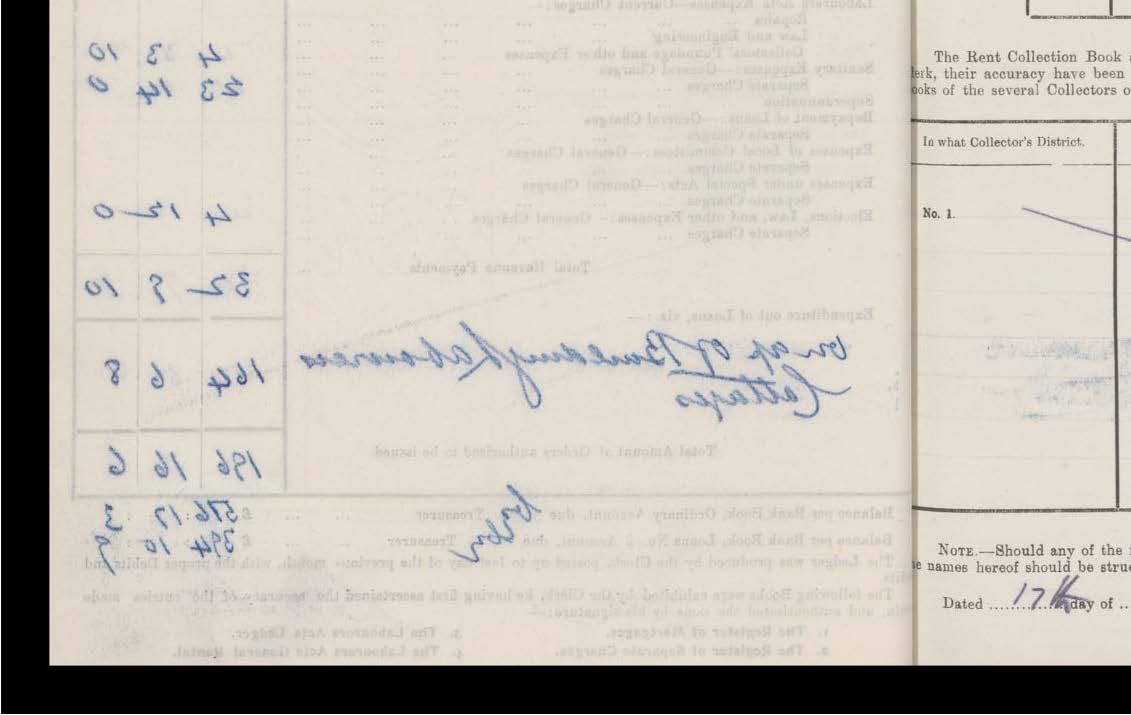 Labourers Acts Expenses—Current Charges:—
Repairs
Law and Engineering
Collectors' Poundage and other Expenses 4 3 10
Sanitary Expenses:—General Charges 23 14 0
Separate Charges
Superannuation
Repayment of Loans:—General Charges
Separate Charges
Expenses of Local Committees:—General Charges
Separate Charges
Expenses under Special Acts:—General Charges
Separate Charges
Elections, Law, and other Expenses:—General Charges 4 12 0
Separate Charges
Total Revenue Payments 32 9 10
Expenditure out of Loans, viz.:—
of Building Labourers 164 6 8
Cottages
Total Amount of Orders authorised to be issued 196 16 6
Balance per Bank Book, Ordinary Account, due Treasurer £ 576 : 17 : 3
Balance per Bank Book, Loans No. 2 Account, due Treasurer £ 394 10 9
The Ledger was produced by the Clerk, posted up to last day of the previous month, with the proper Debits and
The following Books were exhibited by the Clerk, he having first ascertained the accuracy of the entries made
in, and authenticated the same by his signature:—
1. The Register of Mortgages. 3. The Labourers Acts Ledger.
2. The Register of Separate Charges. 4. The Labourers Acts General Rental.
The Rent Collection Book
lerk, their accuracy have been
ooks of the several Collectors o
In what Collector's District.
No. 1.
NOTE.—Should any of the
e names hereof should be stru
Dated ....17th day of ..